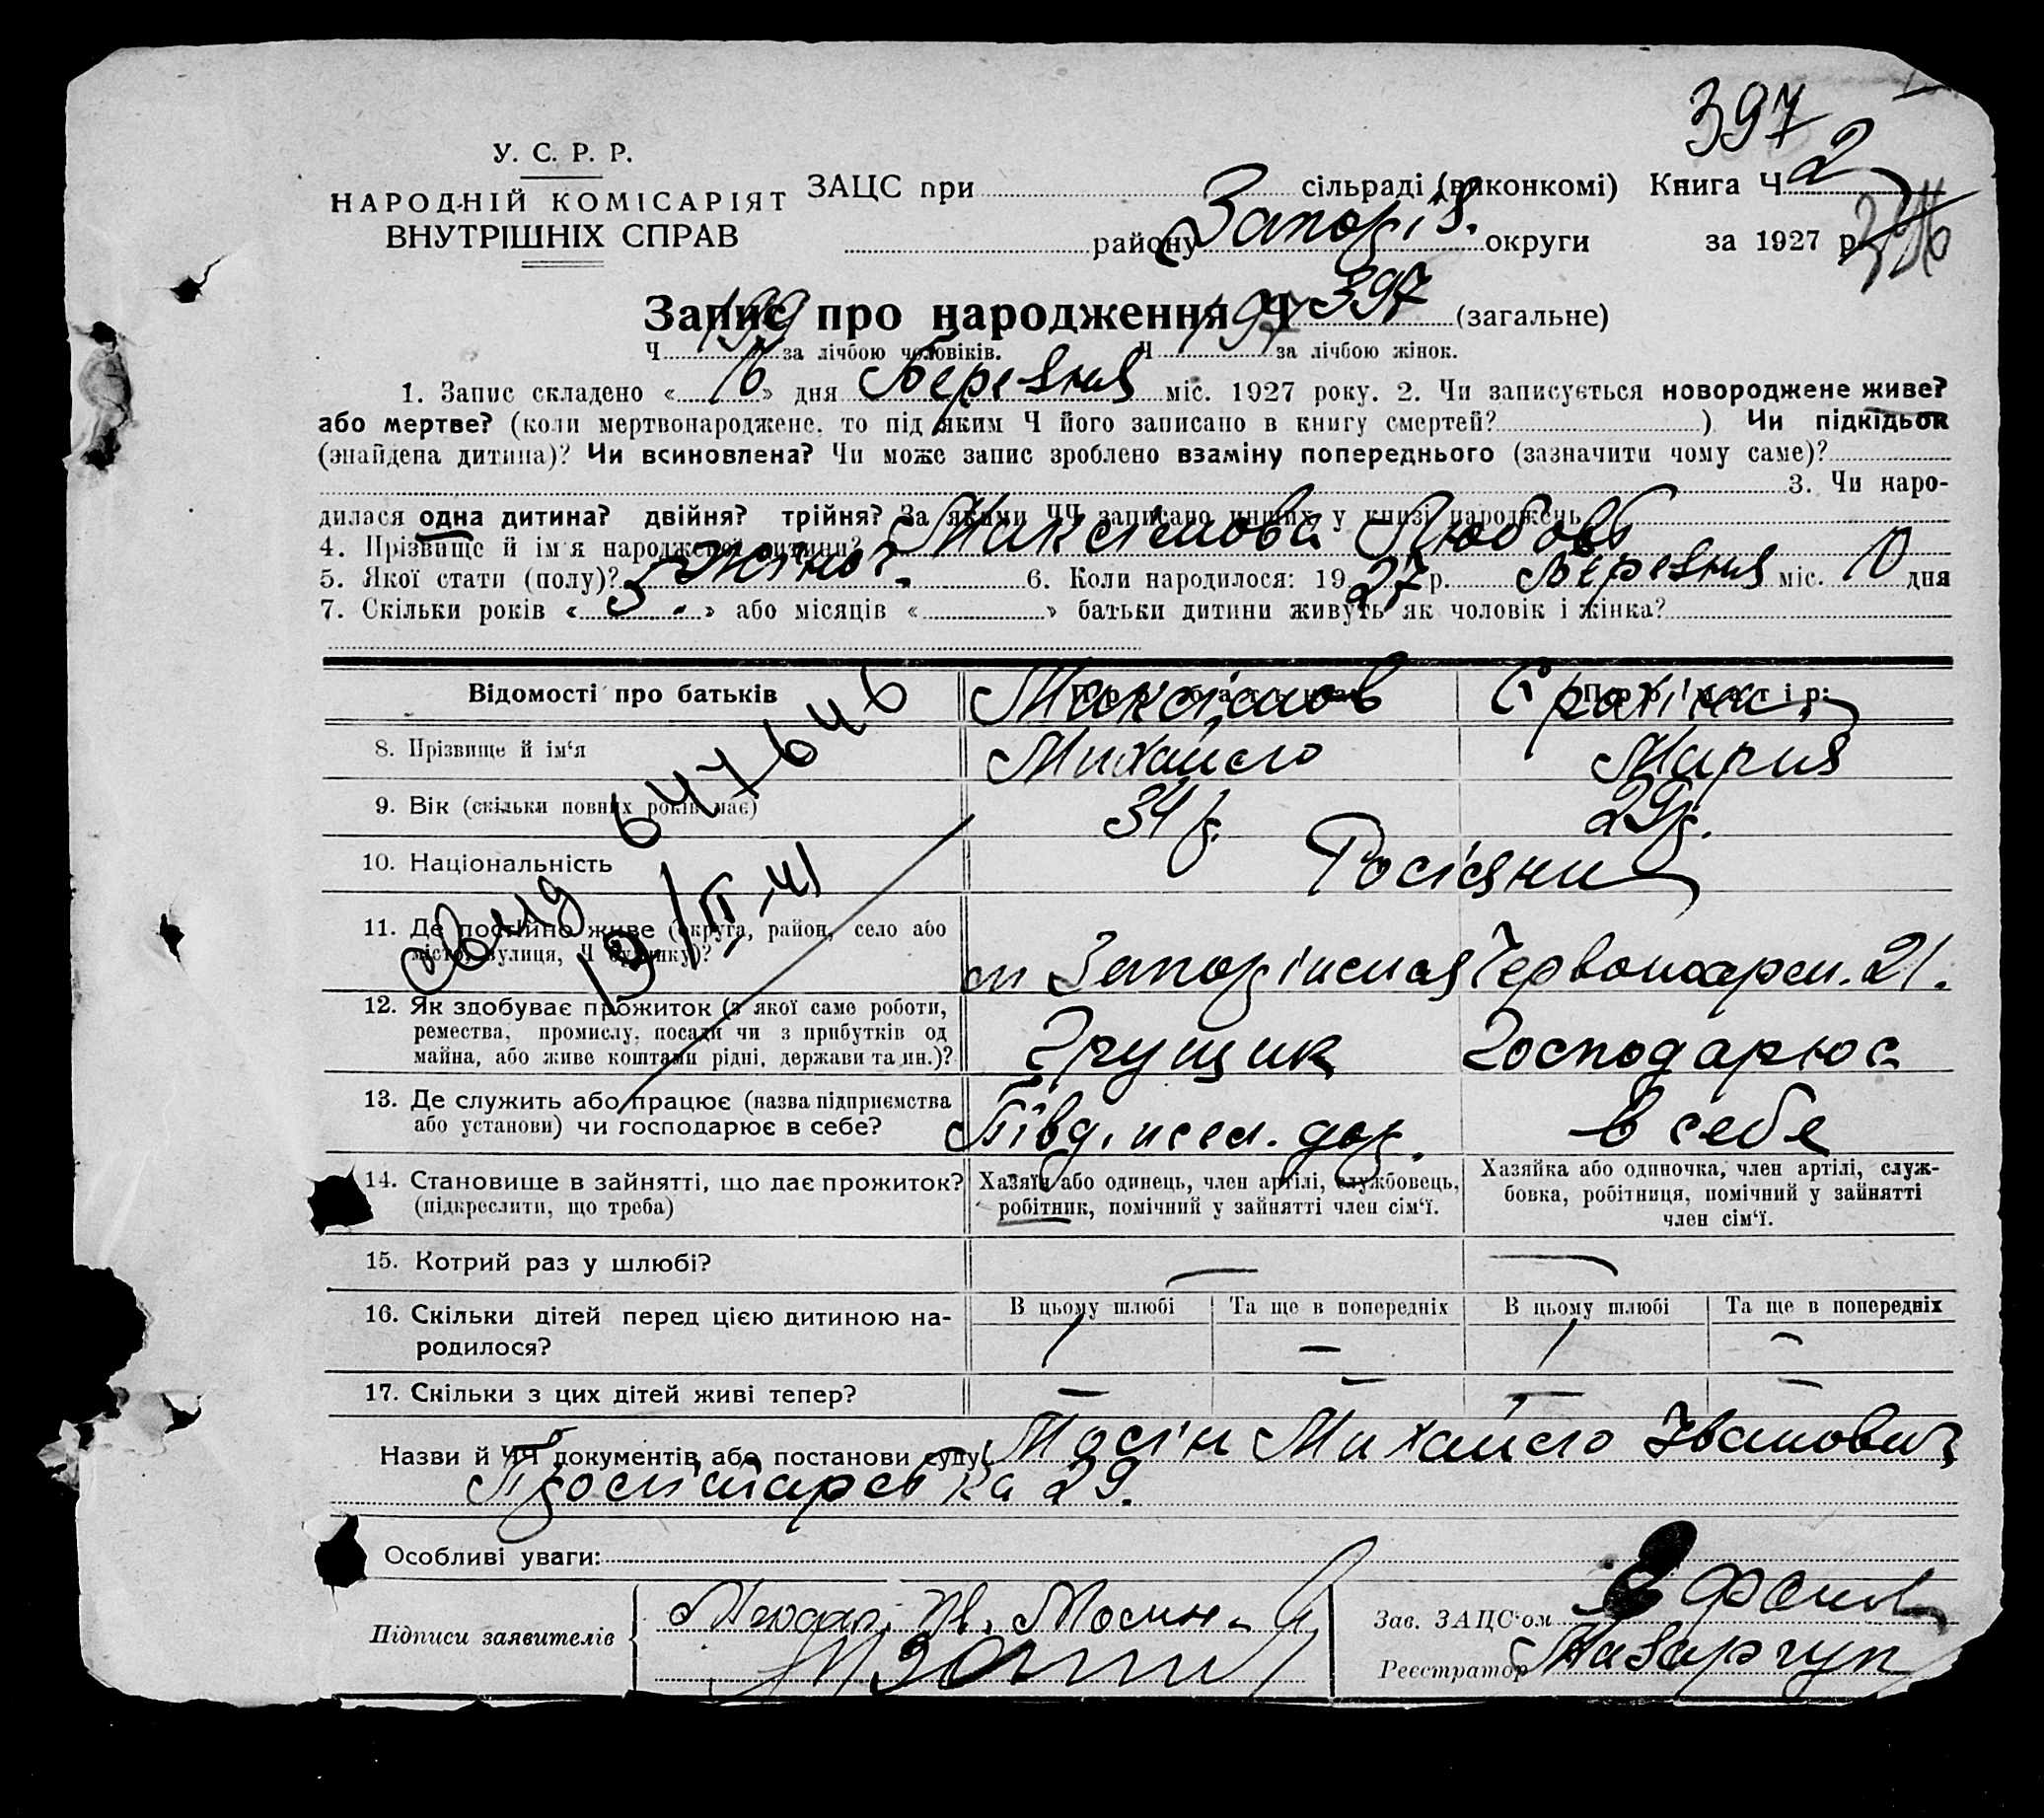 397
У. С. Р. Р.
НАРОДНІЙ КОМІСАРІЯТ
ВНУТРІШНІХ СПРАВ
ЗАЦС при сільраді (виконкомі) Книга Ч 2
району Запоріз. округи за 1927 р.
Запис про народження Ч 397 (загальне)
Ч 199 за лічбою чоловіків. Ч 197 за лічбою жінок.
1. Запис складено «16» дня Березня міс. 1927 року. 2. Чи записується новороджене живе?
або мертве? (коли мертвонароджене, то під яким Ч його записано в книгу смертей? ) Чи підкідьок
(знайдена дитина)? Чи всиновлена? Чи може запис зроблено взаміну попереднього (зазначити чому саме)?
3. Чи наро-
дилася одна дитина? двійня? трійня? За якими ЧЧ записано инших у книзі народжень
4. Прізвище й ім'я народженої дитини? Максімова Любовь
5. Якої стати (полу)? жіноч. 6. Коли народилося: 1927 р. Березня міс. 10 дня
7. Скільки років « 5 » або місяців « » батьки дитини живуть як чоловік і жінка?
Відомості про батьків
Максімов
8. Прізвище й ім'я Михайло Мария
9. Вік (скільки повних років має) 34 р. 29 р.
10. Національність Росіяни
647646
19/II-41
11. Де постійно живе (округа, район, село або
місто, вулиця, Ч будинку)? Червоноарм. 21.
12. Як здобуває прожиток (з якої саме роботи,
ремества, промислу, посади чи з прибутків од
майна, або живе коштами рідні, держави та ин.)? Грущик Господарює
13. Де служить або працює (назва підприємства
або установи) чи господарює в себе? Півд. дор. в себе
14. Становище в зайнятті, що дає прожиток?
(підкреслити, що треба)
Хазяїн або одинець, член артілі, службовець,
робітник, помічний у зайнятті член сім'ї.
Хазяйка або одиночка, член артілі, служ-
бовка, робітниця, помічний у зайнятті
член сім'ї.
15. Котрий раз у шлюбі? — —
16. Скільки дітей перед цією дитиною на-
родилося?
В цьому шлюбі Та ще в попередніх В цьому шлюбі Та ще в попередніх
1 — 1 —
17. Скільки з цих дітей живі тепер? — — — —
Назви й ЧЧ документів або постанови суду Мосін Михайло Іванович
29.
Особливі уваги:
Підписи заявителів Мосин
Зав. ЗАЦС'ом
Реєстратор Назарчук